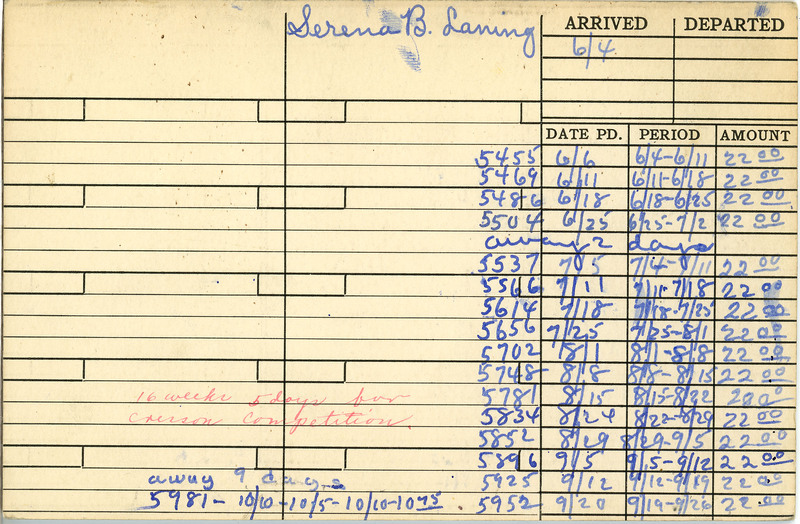 Serena B. Laning
ARRIVED DEPARTED
6/4
DATE PD. PERIOD AMOUNT
5455 6/6 6/4-6/11 22 00
5469 6/11 6/11-6/18 22 00
5486 6/18 6/18-6/25 22 00
5504 6/25 6/25-7/2 22 00
away 2 days
5537 7/5 7/4-7/11 22 00
5566 7/11 7/11-7/18 22 00
5614 7/18 7/18-7/25 22 00
5656 7/25 7/25-8/1 22 00
5702 8/1 8/1-8/8 22 00
5748 8/8 8/8-8/15 22 00
5781 8/15 8/15-8/22 22 00
16 weeks 5 days for
5834 8/24 8/22-8/29 22 00
Cresson Competition.
5852 8/29 8/29-9/5 22 00
5896 9/5 9/5-9/12 22 00
away 9 days
5925 9/12 9/12-9/19 22 00
5981- 10/10-10/5-10/10-10 75
5952 9/20 9/19-9/26 22 00